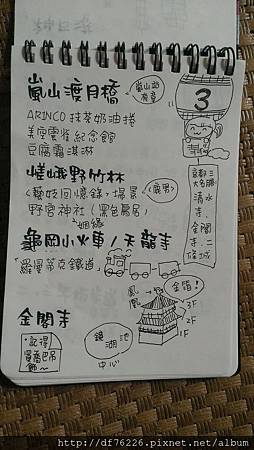 3
嵐山渡月橋
嵐山站
有章
ARINCO 抹茶奶油捲
美空雲雀紀念館
豆腐霜淇淋
嵯峨野竹林
<藝妓回憶錄>場景
<鹿男>
野宮神社(黑色鳥居)
姻緣
京都三大名勝
清水寺、金閣寺、二條城
龜岡小火車/天龍寺
羅曼蒂克鐵道
金閣寺
鳳凰
金箔!
3F
2F
1F
鏡湖池
中心
記得
買香巴吊飾~
http://df76226.pixnet.net/album